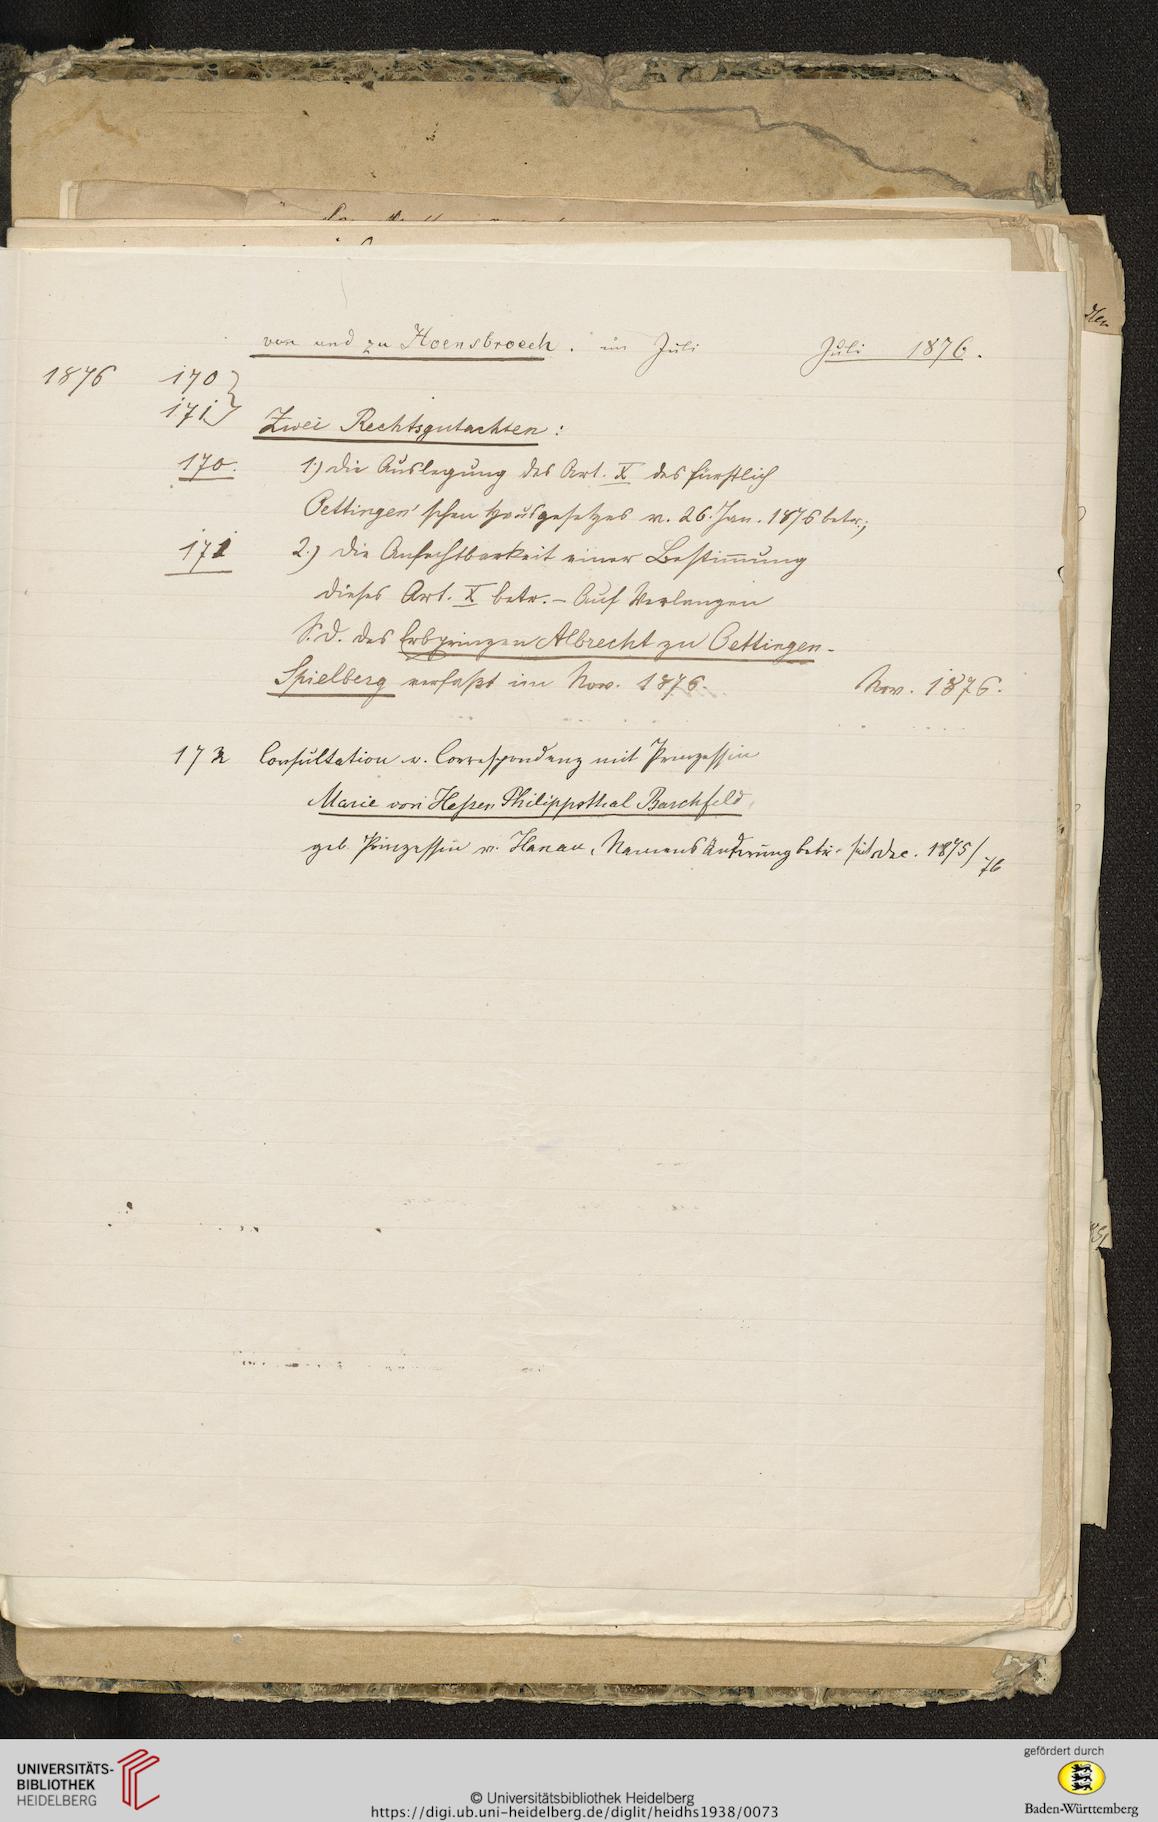 von und zu Hoensbroech. im Juli Juli 1876.
1876 170
171
Zwei Rechtsgutachten:
170. 1.) die Auslegung des Art. X des fürstlich
Oettingen'schen Hausgesetzes v. 26. Jan. 1876 betr.;
171 2.) die Anfechtbarkeit einer Bestimmung
dieses Art. X betr. – Auf Verlangen
S. D. des Erbprinzen Albrecht zu Oettingen-
Spielberg verfaßt im Nov. 1876. Nov. 1876.
172 Consultation u. Correspondenz mit Prinzessin
Marie von Hessen Philippsthal Barchfeld,
geb. Prinzessin v. Hanau, Namensänderung betr. seit Dec. 1875/
76
UNIVERSITÄTS-
BIBLIOTHEK
HEIDELBERG
© Universitätsbibliothek Heidelberg
https://digi.ub.uni-heidelberg.de/diglit/heidhs1938/0073
gefördert durch
Baden-Württemberg